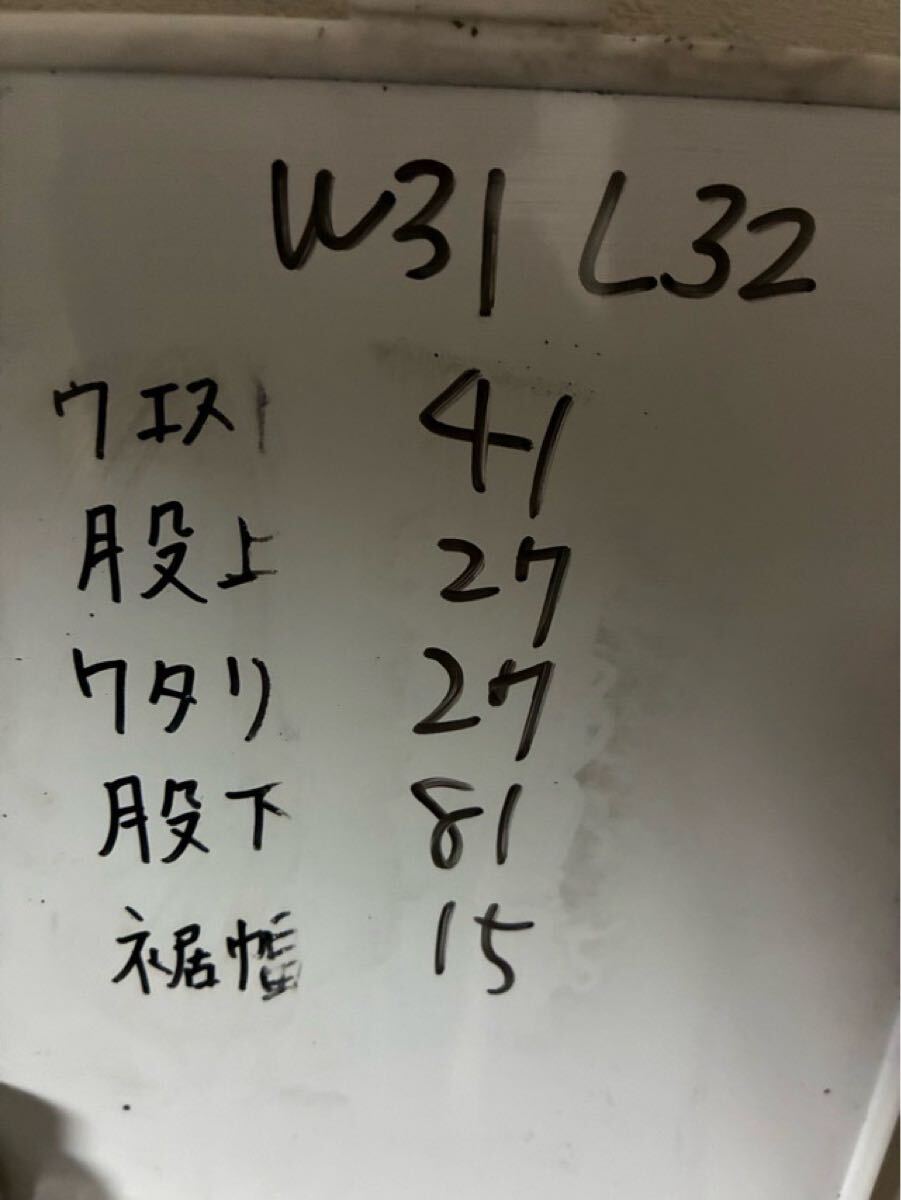 W31 L32
ウエスト 41
股上 27
ワタリ 27
股下 81
裾幅 15